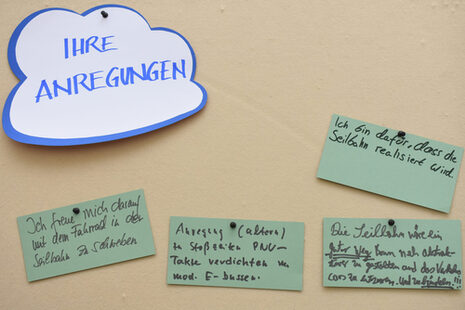 IHRE
ANREGUNGEN
Ich bin dafür, dass die
Seilbahn realisiert wird.
Ich freue mich darauf
mit dem Fahrrad in der
Seilbahn zu schweben
Anregung (altern)
zu Stoßzeiten PNV-
Takte verdichten m
mod. E-bussen.
Die Seilbahn wäre ein
guter Weg Bonn nah
zu gestalten und das Verkehrs
zu . Und zu